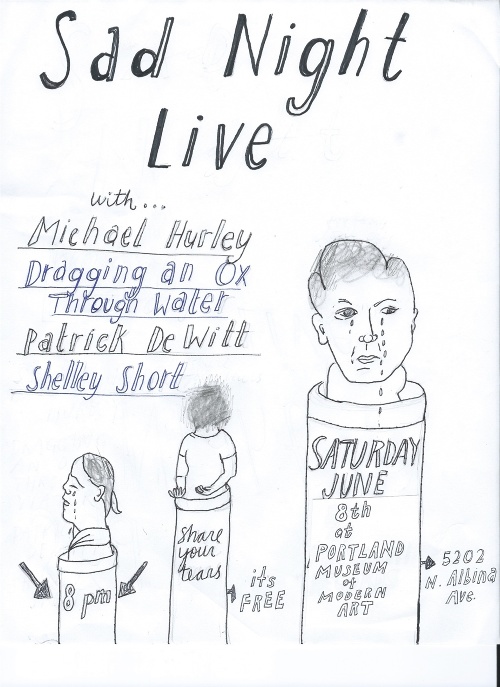 Sad Night
Live
with...
Michael Hurley
Dragging an Ox
Through Water
Patrick DeWitt
Shelley Short
SATURDAY
JUNE
8th
at
PORTLAND
MUSEUM
of
MODERN
ART
5202
N. Albina
Ave.
Share
your
tears
its
FREE
8 pm